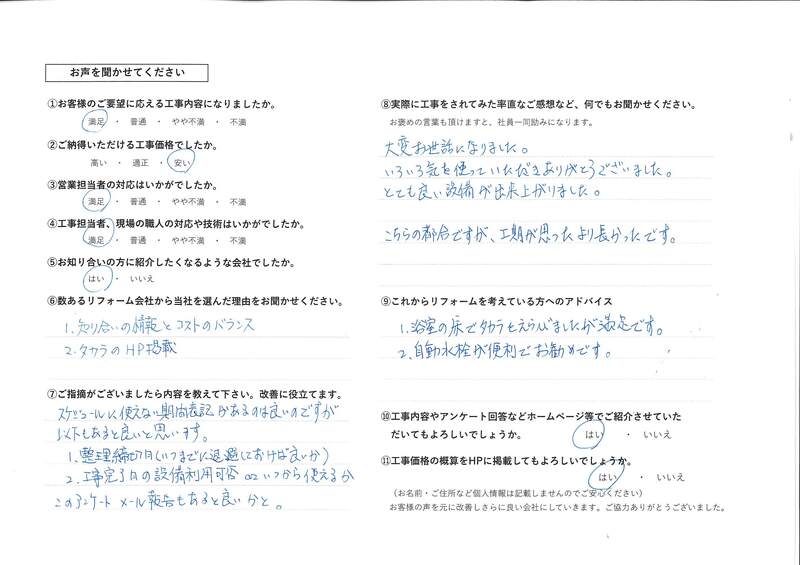 お声を聞かせてください
①お客様のご要望に応える工事内容になりましたか。
満足 ・ 普通 ・ やや不満 ・ 不満
②ご納得いただける工事価格でしたか。
高い ・ 適正 ・ 安い
③営業担当者の対応はいかがでしたか。
満足 ・ 普通 ・ やや不満 ・ 不満
④工事担当者、現場の職人の対応や技術はいかがでしたか。
満足 ・ 普通 ・ やや不満 ・ 不満
⑤お知り合いの方に紹介したくなるような会社でしたか。
はい ・ いいえ
⑥数あるリフォーム会社から当社を選んだ理由をお聞かせください。
1. 知り合いの情報とコストのバランス
2. タカラのHP掲載
⑦ご指摘がございましたら内容を教えて下さい。改善に役立てます。
スケジュールに使えない期間表記があるのは良いのですが
以下もあると良いと思います。
1. 整理締切日(いつまでに退避しておけば良いか)
2. 工事完了日の設備利用可否 いつから使えるか
このアンケート メール報告もあると良いかと。
⑧実際に工事をされてみた率直なご感想など、何でもお聞かせください。
お褒めの言葉も頂けますと、社員一同励みになります。
大変お世話になりました。
いろいろ気を使っていただきありがとうございました。
とても良い設備が出来上がりました。
こちらの都合ですが、工期が思ったより長かったです。
⑨これからリフォームを考えている方へのアドバイス
1. 浴室の床でタカラをえらびましたが満足です。
2. 自動水栓が便利でお勧めです。
⑩工事内容やアンケート回答などホームページ等でご紹介させていた
だいてもよろしいでしょうか。 はい ・ いいえ
⑪工事価格の概算をHPに掲載してもよろしいでしょうか。
はい ・ いいえ
（お名前・ご住所など個人情報は記載しませんのでご安心ください）
お客様の声を元に改善しさらに良い会社にしていきます。ご協力ありがとうございました。